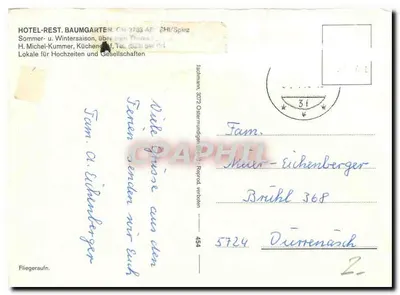 HOTEL-REST. BAUMGARTEN, CH-3703 AE
Sommer- u. Wintersaison,
H. Michel-Kummer, Küchenchef, Tel.
Lokale für Hochzeiten und Gesellschaften
Viele Grüsse aus den
Ferien senden wir Euch
Fam. A. Eichenberger
Fliegeraufn.
3072 Ostermundigen
Reprod. verboten
454
3f
Fam.
Muer-Eichenberger
Brühl 368
5724 Dürrenäsch
2.-
CPARAMA